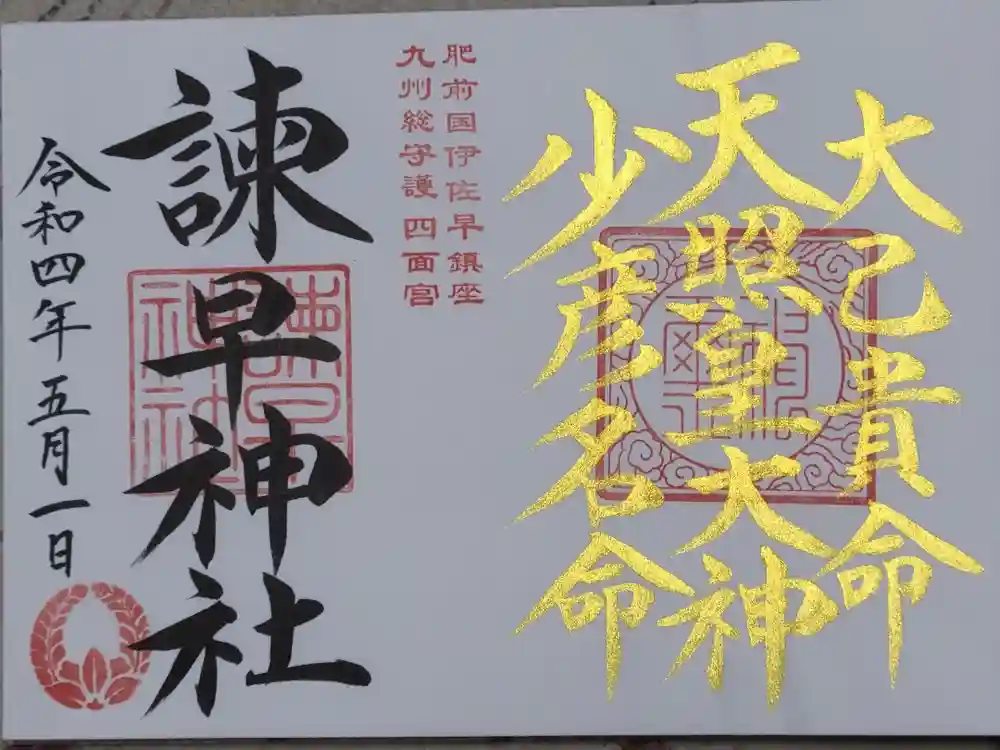 大己貴命
天照皇大神
少彦名命
肥前国伊佐早鎮座
九州総守護四面宮
諫早神社
諫早神社
令和四年五月一日